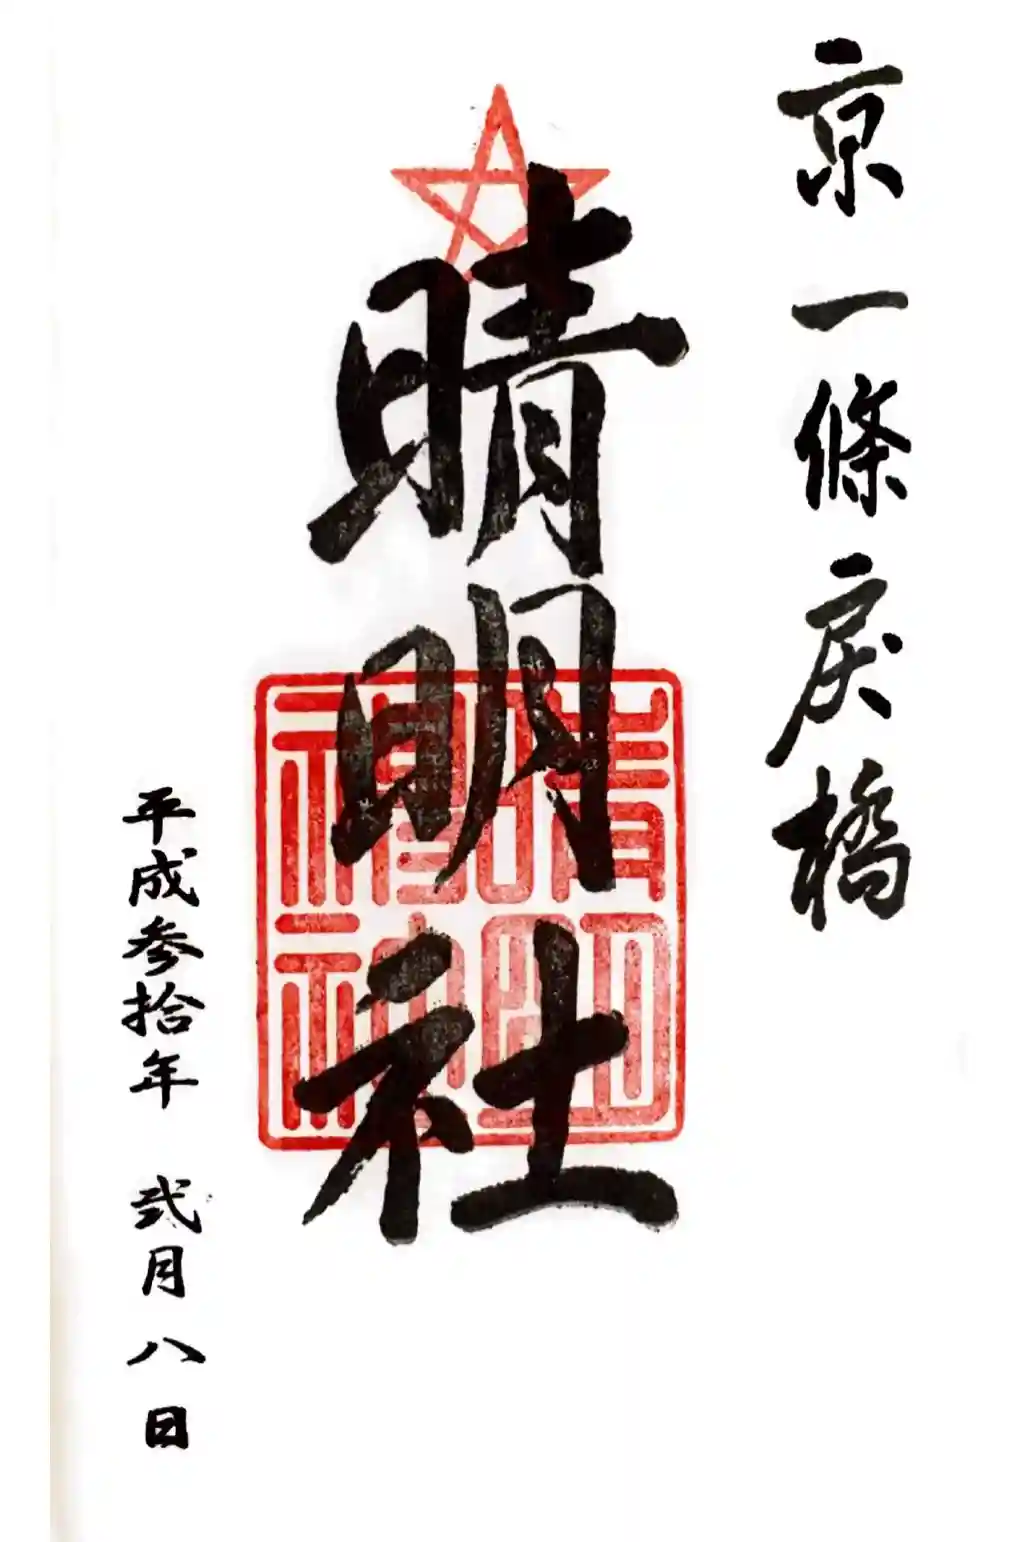 京一條戻橋
晴明社
晴明神社
平成参拾年 弐月八日